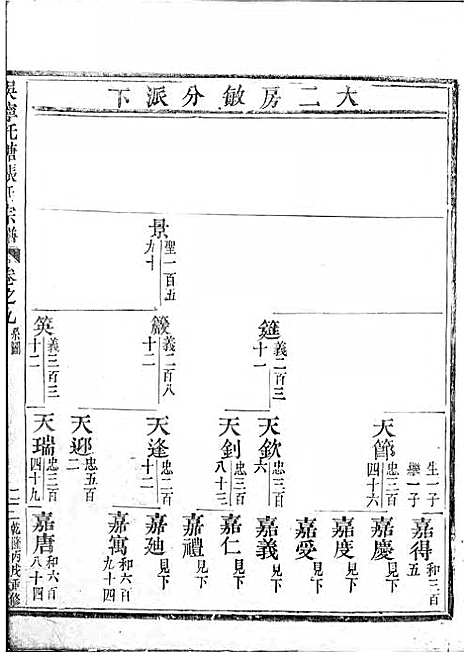 大二房敏分派下
景 聖一百五九十
筵 義二百三十一
籔 義二百八十二
筴 義三百三十二
生一子
樂一子
天節 忠三百四十六
天欽 忠三百六
天釗 忠三百八十三
天逢 忠二百十二
天迎 忠五百二
天瑞 忠三百四十九
嘉得 和三百五
嘉慶 見下
嘉度 見下
嘉愛 見下
嘉義 見下
嘉仁 見下
嘉禮 見下
嘉廸 見下
嘉寓 和六百九十四
嘉唐 和六百八十四
吳寧託塘張氏宗譜 卷之九 系圖
乾隆丙戌重修